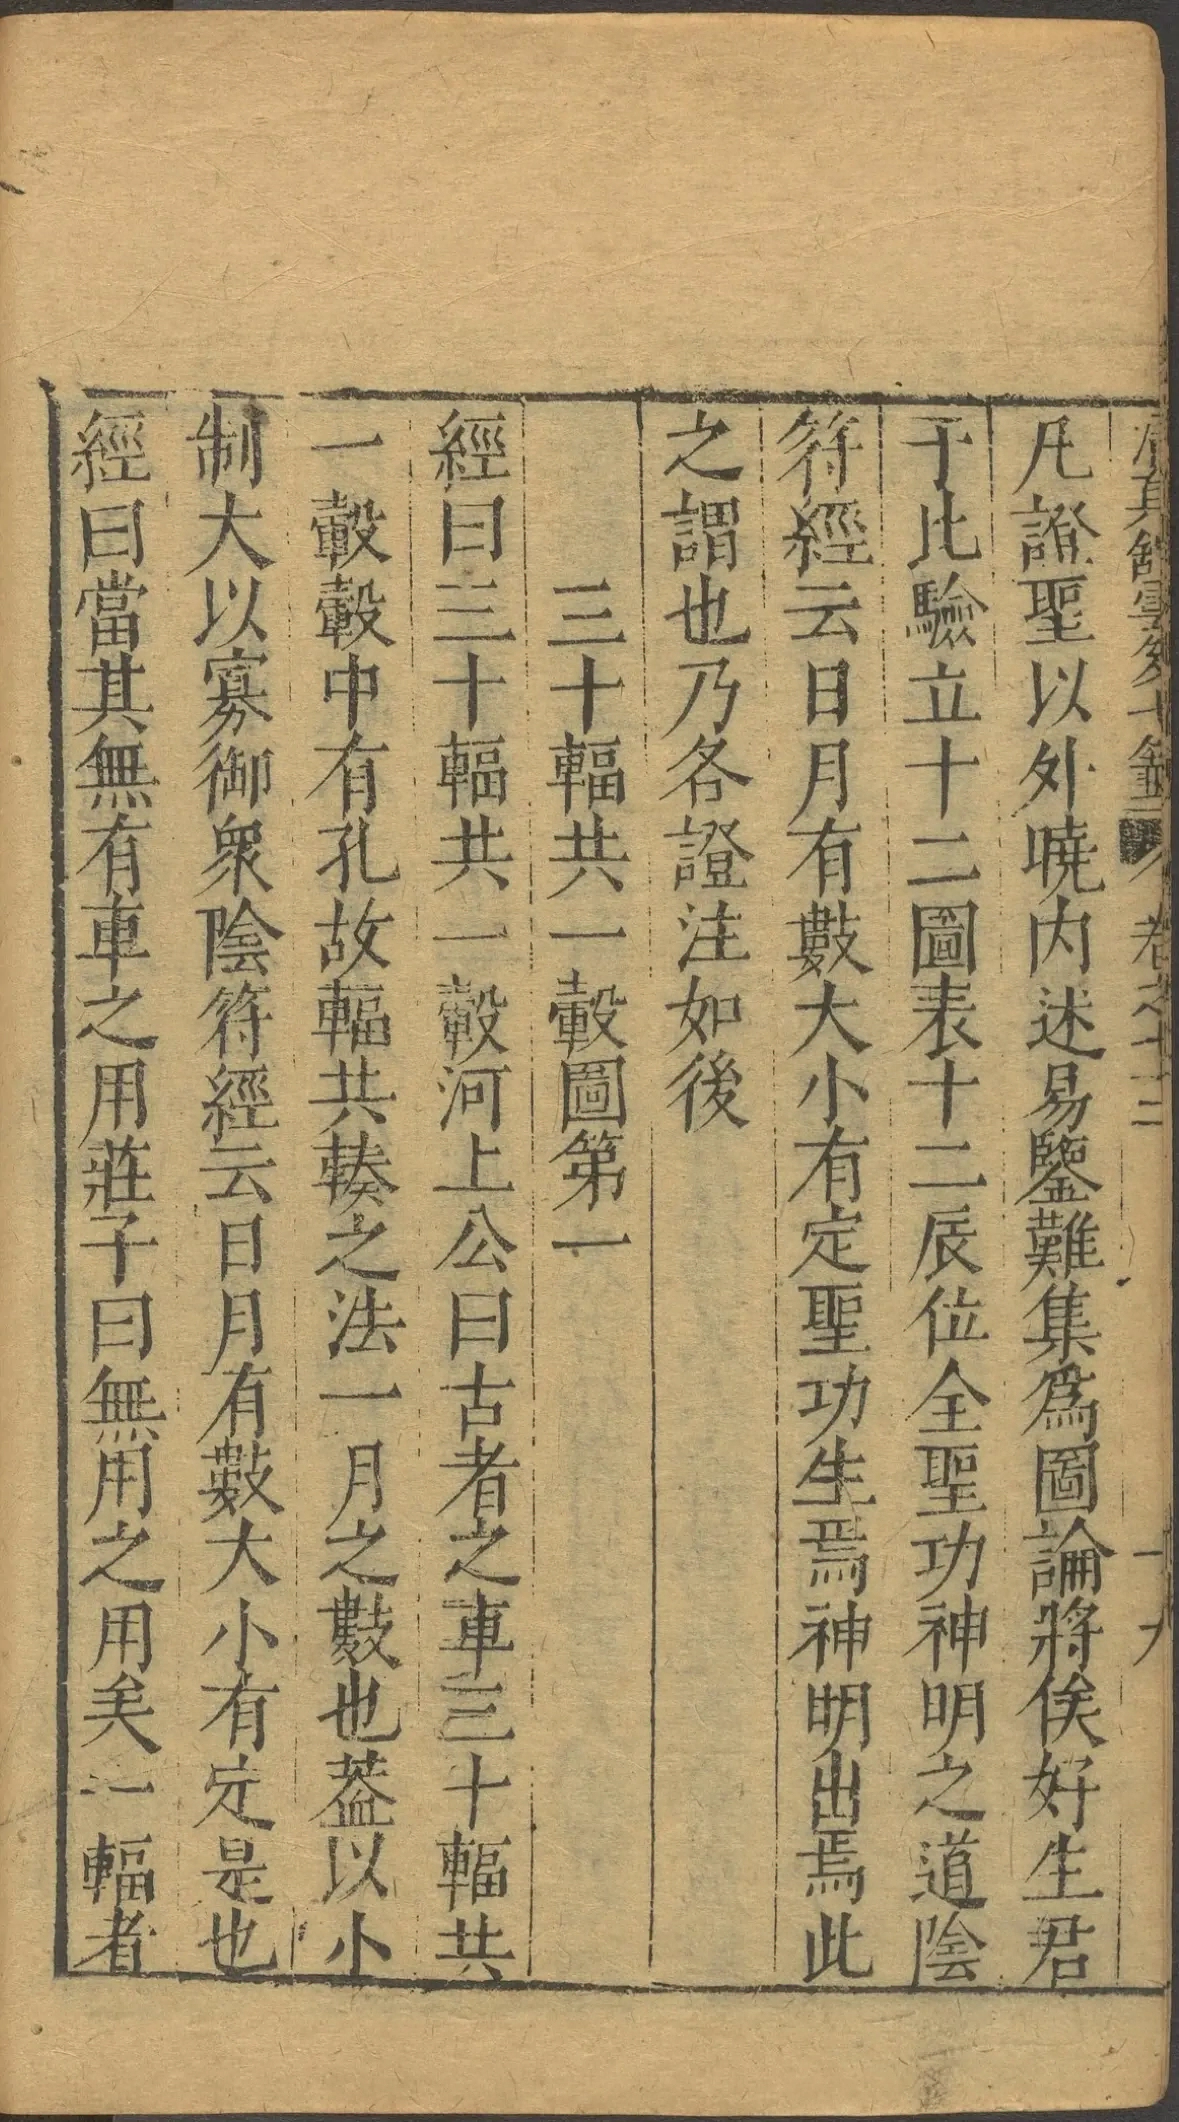 凡證聖以外曉内述易鑒難集爲圖論將俟好生君
于比驗立十二圖表十二辰位全聖功神明之道陰
符經云日月有數大小有定聖功生焉神明出焉此
之謂也乃各證注如後
三十輻共一轂圖第一
經曰三十輻共一轂河上公曰古者之車三十輻共
一轂轂中有孔故輻共輳之法一月之數也葢以小
制大以寡御衆陰符經云日月有數大小有定是也
經曰當其無有車之用莊子曰無用之用矣一輻者